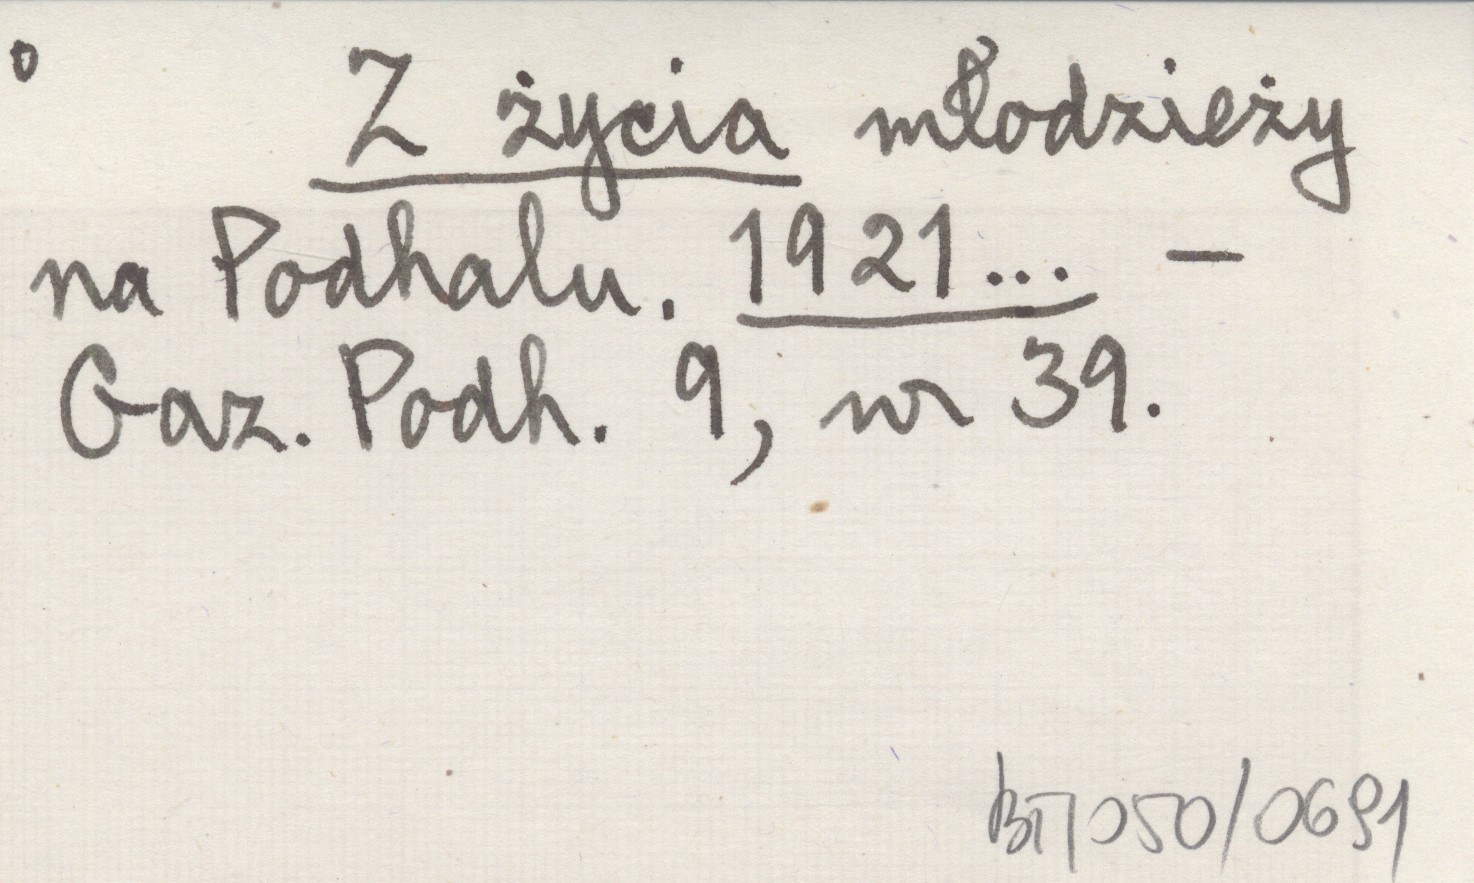 o Z życia młodzieży
na Podhalu. 1921... -
Gaz. Podh. 9, nr 39.
BT/050/0691